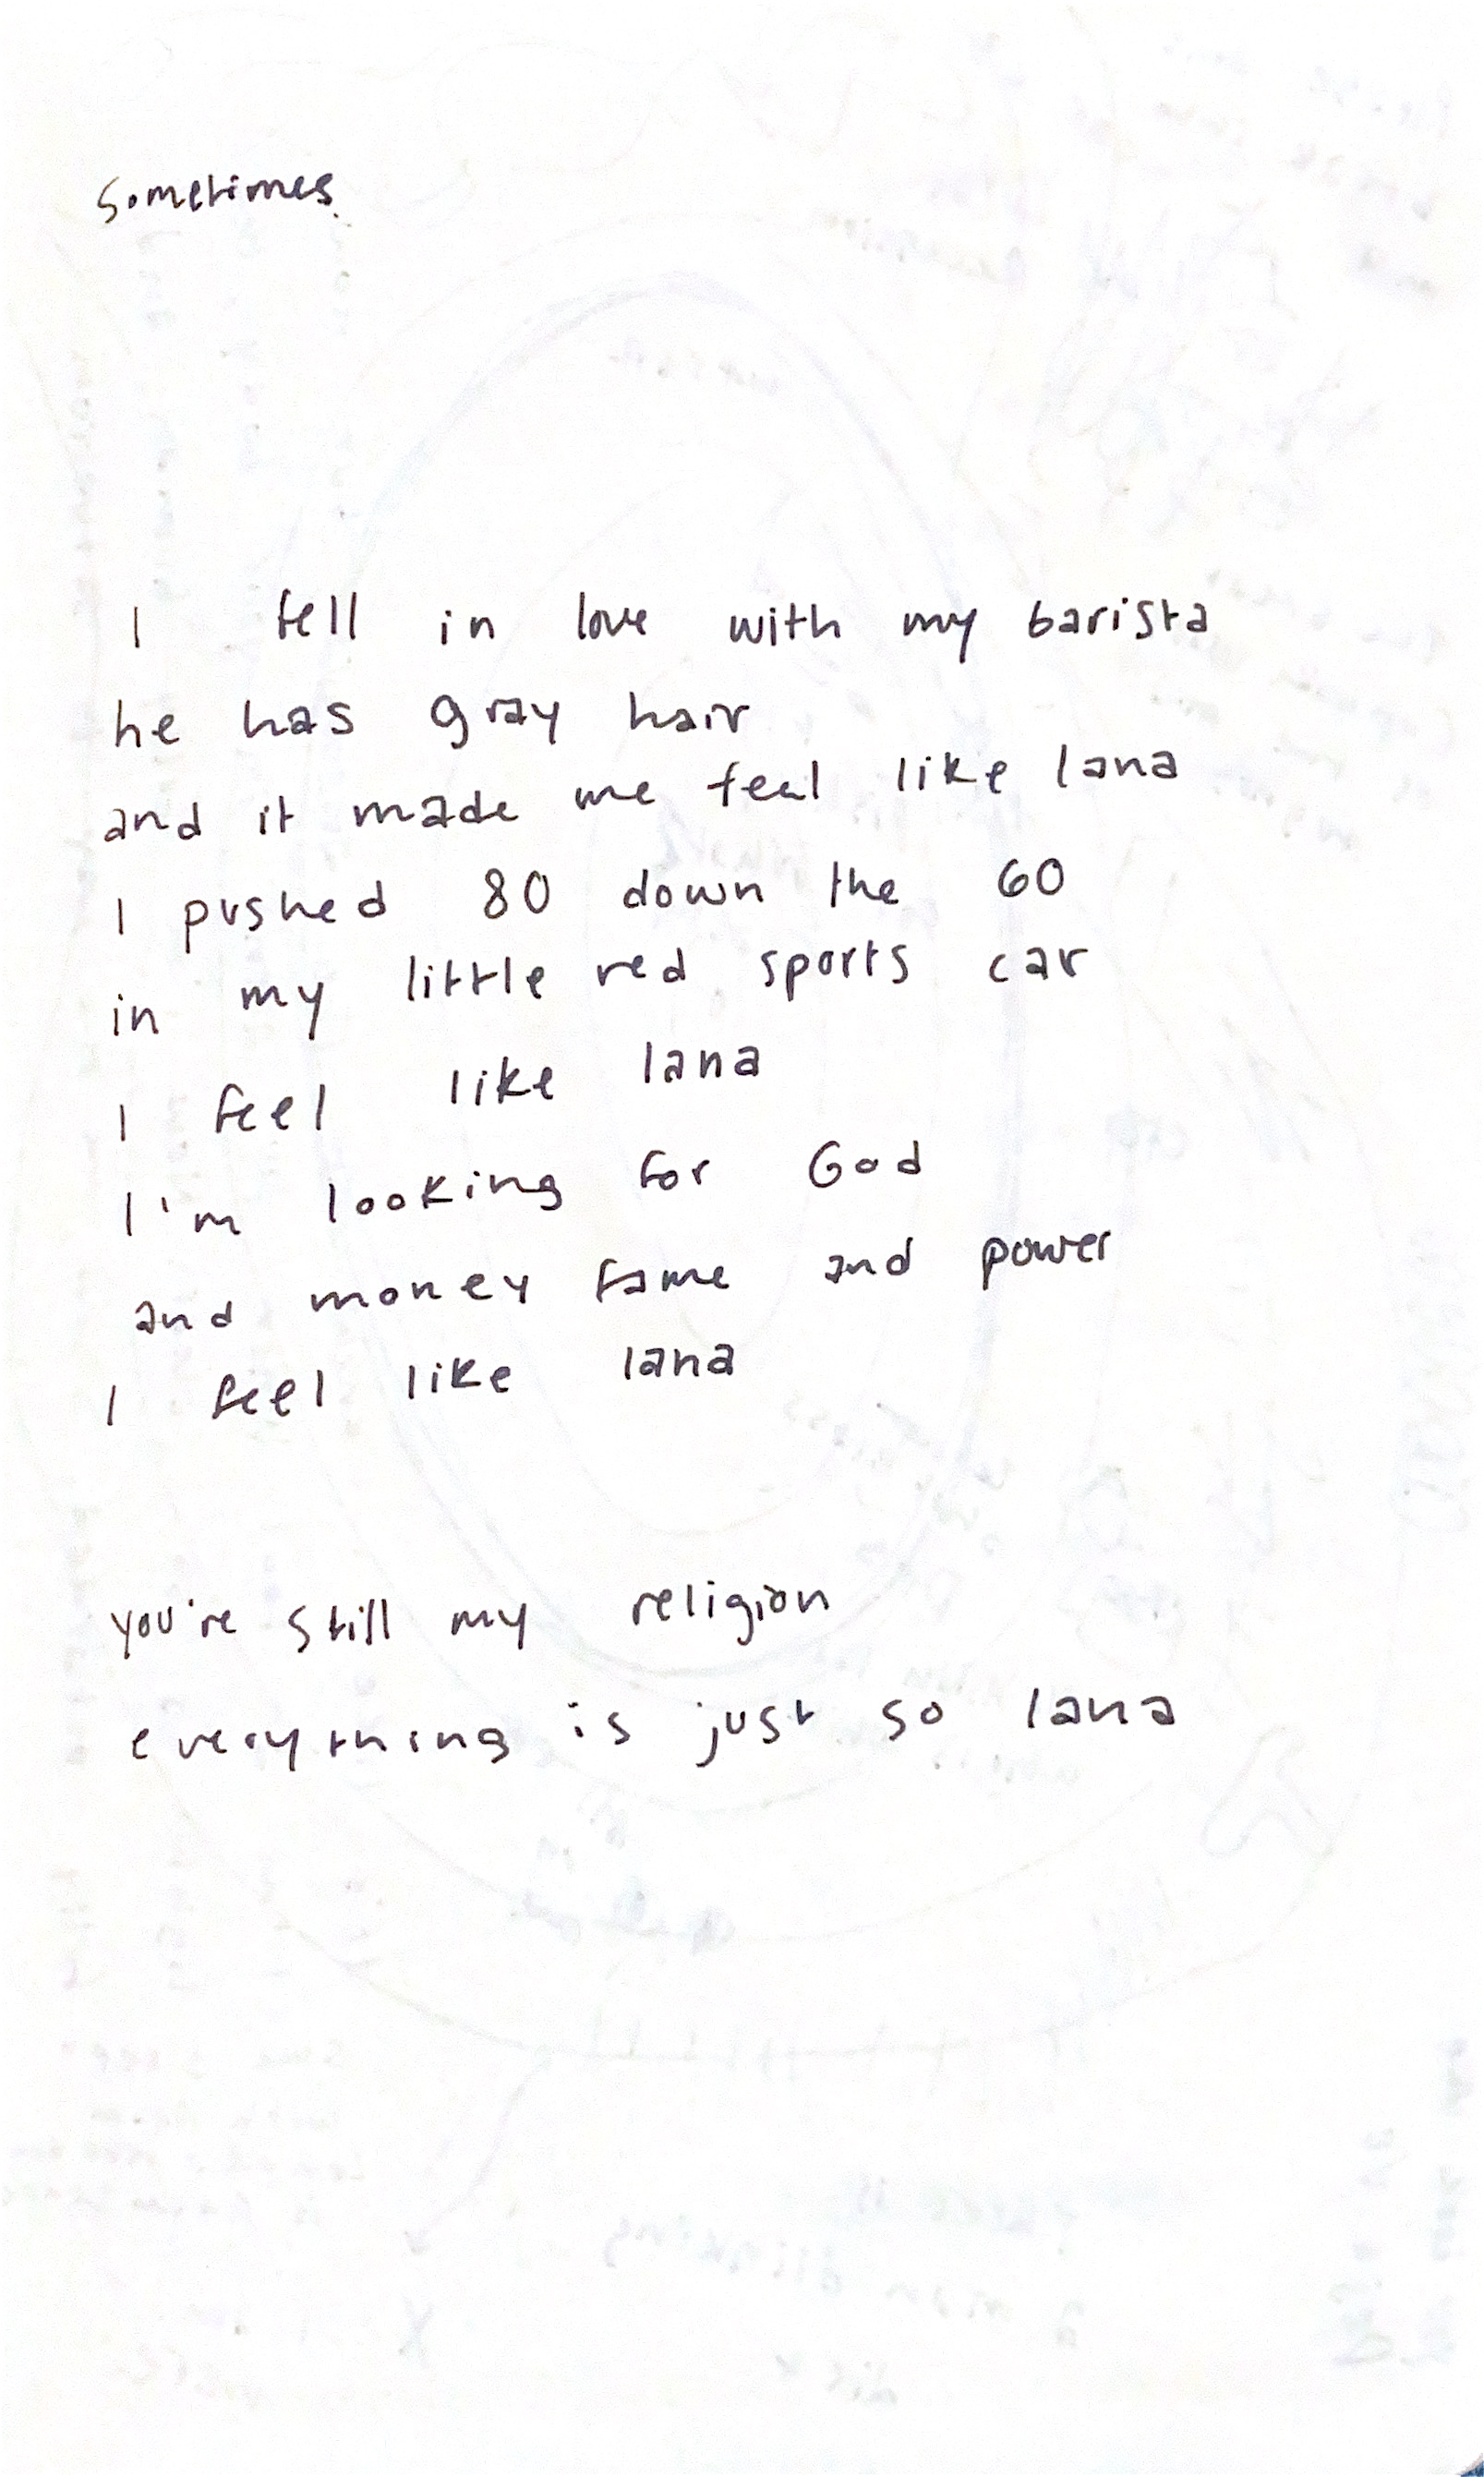 sometimes
I fell in love with my barista
he has gray hair
and it made me feel like lana
I pushed 80 down the 60
in my little red sports car
I feel like lana
I'm looking for God
and money fame and power
I feel like lana
you're still my religion
everything is just so lana